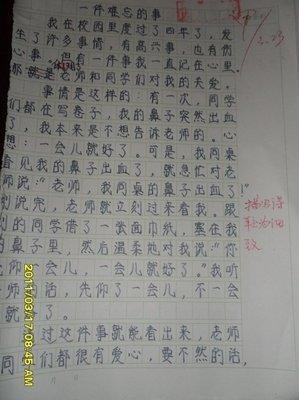 一件难忘的事
我在校园里度过了四年了，发
生了许多事情，有高兴事，也有伤
心事。但有一件我一直记在心里。
那就是老师和同学们对我的关爱。
事情是这样的：有一次，同学
们都在写卷子，我的鼻子突然出血
了，我本来是不想告诉老师的。心
想：一会儿就好了。可是，我同桌
看见我的鼻子出血了，就急忙对老
师说：“老师，我同桌的鼻子出血了！”
刚说完，老师就立刻过来看我。跟
的同学借了一张面巾纸，塞在我
的鼻子里，然后温柔地对我说：“你
先仰了一会儿，一会儿就好了。”我听
师的话，先仰了一会儿，不一会
就了。
过这件事就能看出来，老师
同们都很有爱心，要不然的话，
3.23
描写得
较为细
致
2011/03/17 08:45 AM